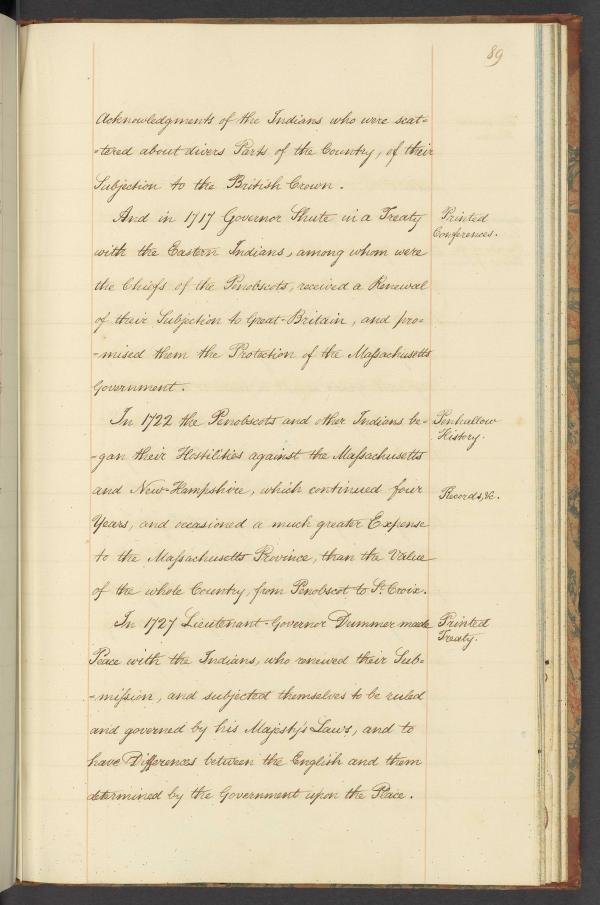 89
Acknowledgments of the Indians who were scat=
=tered about divers Parts of the Country, of their
Subjection to the British Crown.
And in 1717 Governor Shute in a Treaty
Printed
Conferences.
with the Eastern Indians, among whom were
the Chiefs of the Penobscots, received a Renewal
of their Subjection to Great-Britain, and pro=
=mised them the Protection of the Maſsachusetts
Government.
In 1722 the Penobscots and other Indians be=
Penhallow
History.
=gan their Hostilities against the Maſsachusetts
and New-Hampshire, which continued four
Records, &c.
Years, and occasioned a much greater Expense
to the Maſsachusetts Province, than the Value
of the whole Country, from Penobscot to St. Croix.
In 1727 Lieutenant-Governor Dummer made
Printed
Treaty.
Peace with the Indians, who renewed their Sub=
=miſsion, and subjected themselves to be ruled
and governed by his Majesty's Laws, and to
have Differences between the English and them
determined by the Government upon the Place.